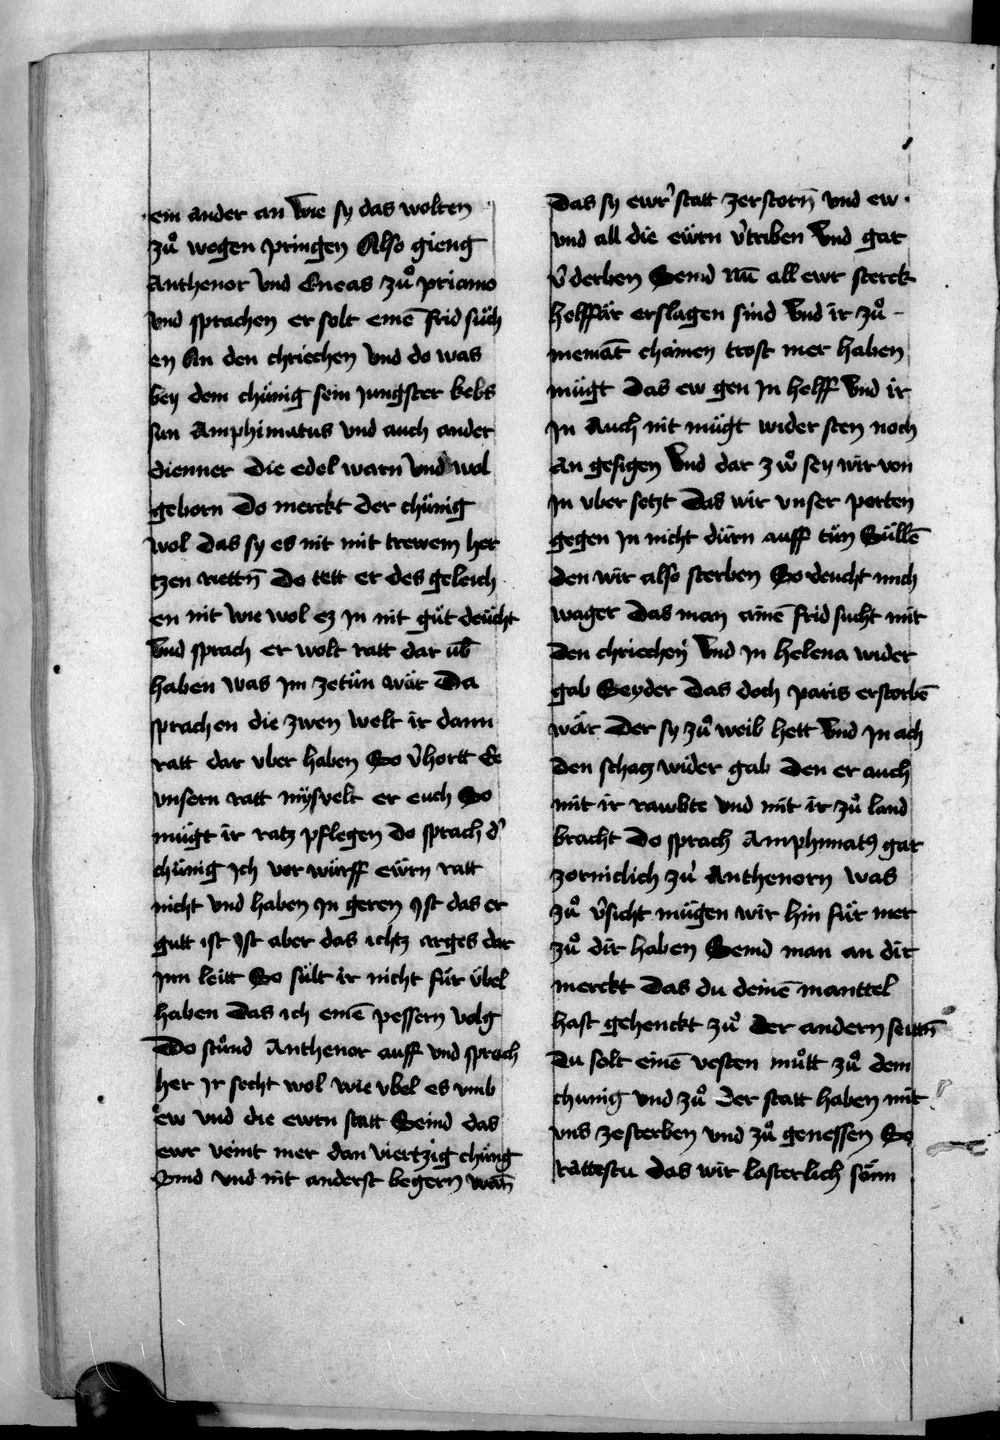 ein ander an Wie sy das wolten
zů wegen pringen Also gieng
Anthenor vnd Eneas zů priamo
vnd sprachen er solt einē frid sůch
en An den chriechen Vnd do was
bey dem chünig sein jungster kebs
sun Amphimatus vnd auch ander
dienner die edel warn vnd wol
geborn Do merckt der chünig
wol das sy es nit mit trewem her
tzen riettn̄ Do tett er des geleich
en nit wie wol ez jn nit gůt deücht
Vnd sprach er wolt ratt dar üb̄
haben was jm zetün wär Da
sprachen die zwen welt ir dann
ratt dar vber haben So v̓hortt Ee
vnsern ratt mysvelt er euch So
mügt ir ratz pflegen do sprach d̓
chünig jch vor würff ewrn ratt
nicht vnd haben jn geren jst das er
gutt ist jst aber das ichtz arges dar
jnn leitt So sült ir nicht für übel
haben das ich einē pessern volg
Do stůnd Anthenor auff vnd sprach
her jr secht wol wie vbel es vmb
ew vnd die ewrn statt Seind das
ewr veint mer dan viertzig chüng
Sind vnd nit anderst begern wan̄
Das sy ewr̓ statt zerstorn̄ vnd ew
vnd all die ewrn v̓triben Vnd gar
v̓derben Seind Nū all ewr sterck
helffär erslagen sind Vnd ir zů
niemāt chainen trost mer haben
mügt das ew gen jn helff Vnd ir
jn auch nit mügt wider sten noch
an gesigen Vnd dar zů sey wir von
jn vber setzt das wir vnser porten
gegen jn nicht dürn auff tün Süllē
den wir also sterben So deucht mich
wager das man ainē frid sucht mit
den chriechen Vnd jn helena wider
gab Seyder das doch paris erstorbē
wär Der sy zů weib hett Vnd jn ach
den schaz wider gab den er auch
mit ir rawbte vnd mit ir zů land
bracht do sprach Amphimatꝰ gar
zorniclich zu Anthenorn was
zů v̓sicht mügen wir hin für mer
zů dir haben Seind man an dir
merckt das du deinē manttel
hast gehenckt zů der andern seittn̄
du solt einē vesten můtt zů dem
chunig vnd zů der statt haben mit
vns zesterben vnd zů genessen So
rattestu das wir lasterlich sänn